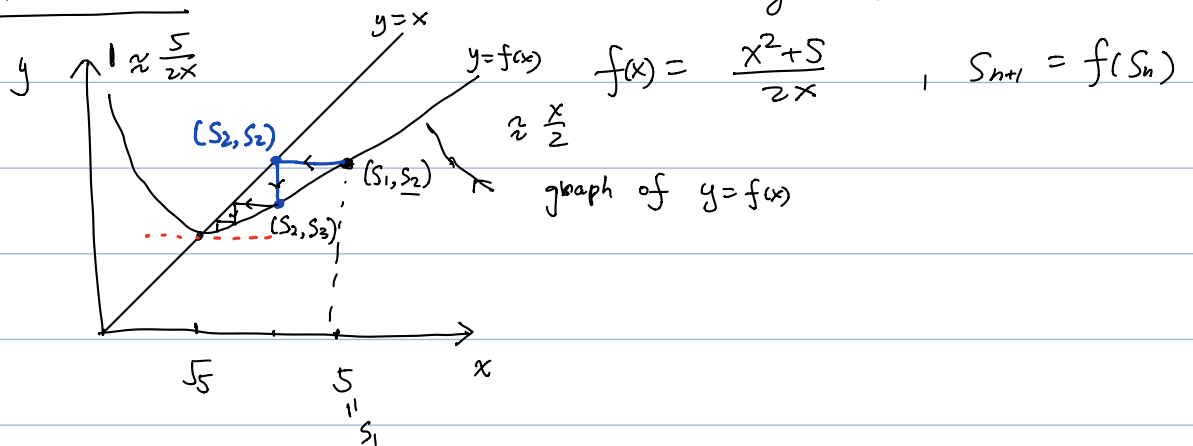 y = x
y ≈ 5/2x
y = f(x)
f(x) = (x² + 5)/2x , S_{n+1} = f(S_n)
≈ x/2
(S₂, S₂)
(S₁, S₂)
graph of y = f(x)
(S₂, S₃)
√5 5 x
=
S₁